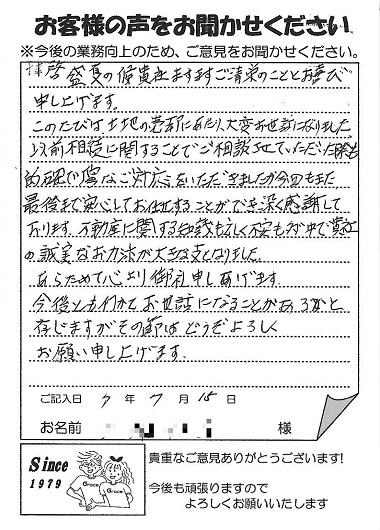 お客様の声をお聞かせください
※今後の業務向上のため、ご意見をお聞かせください。
拝啓 盛夏の候貴社ますますご清栄のこととお喜び
申し上げます。
このたびは土地の売却にあたり、大変お世話になりました
以前相続に関することでご相談させていただいた際も
的確で丁寧なご対応をいただきましたが今回もまた
最後まで安心してお任せすることができ深く感謝して
おります。不動産に関する知識も乏しく不安もある中で貴社
の誠実なお力添が大きな支えとなりました。
あらためて心より御礼申しあげます。
今後とも何かとお世話になることがあるかと
存じますがその節はどうぞよろしく
お願い申し上げます。
ご記入日 7 年 7 月 15 日
お名前 様
Since
1979
Grace
Grace
貴重なご意見ありがとうございます!
今後も頑張りますので
よろしくお願いいたします